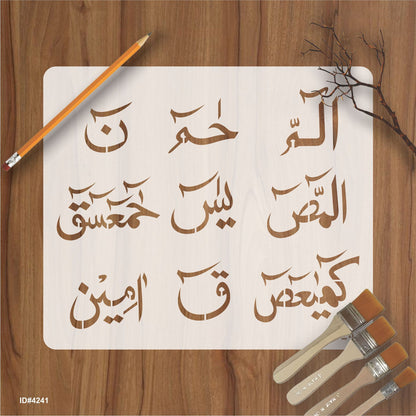 الٓمّٓ حٰمٓ نٓ
الٓمّٓصٓ يٰسٓ حٰمٓعٓسٓقٓ
كٓهٰيٰعٓصٓ قٓ اٰمِيْن
ID#4241